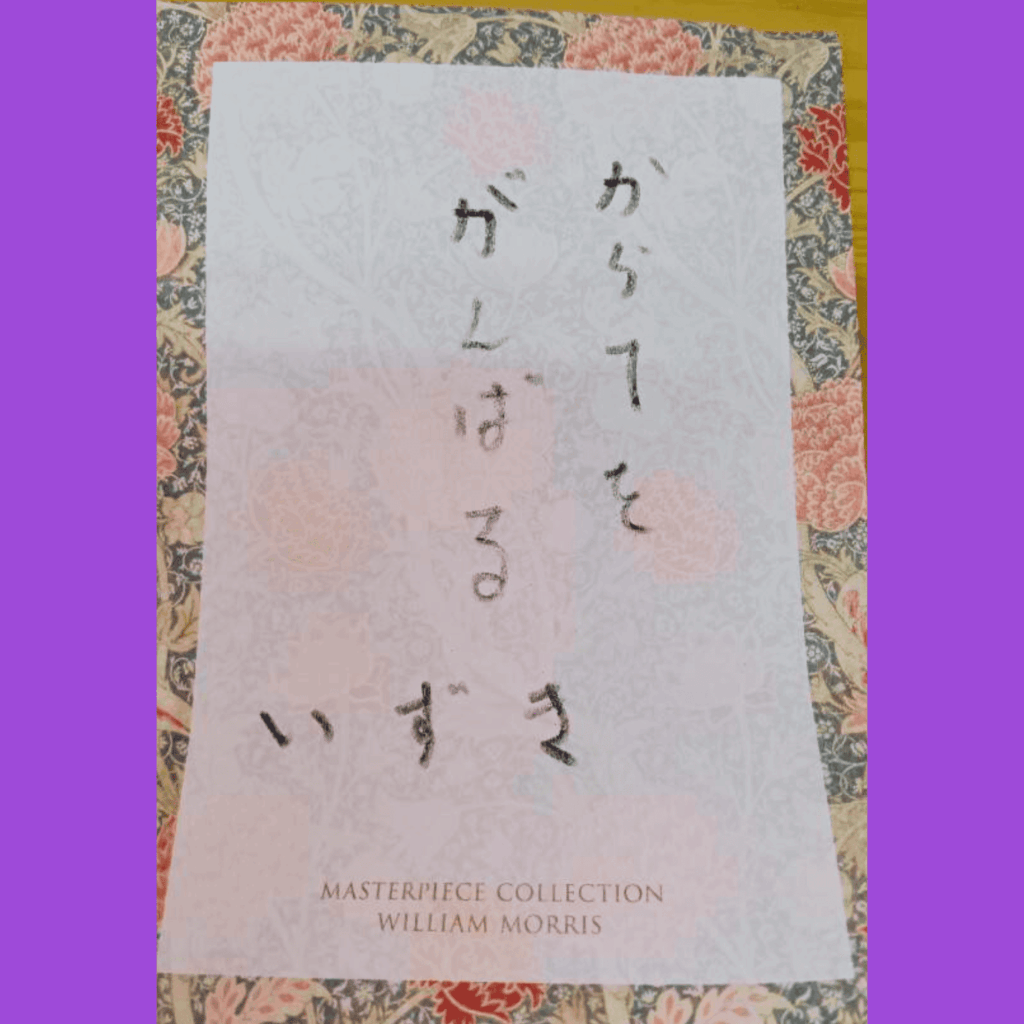 からてを
がんばる
いずき
MASTERPIECE COLLECTION
WILLIAM MORRIS